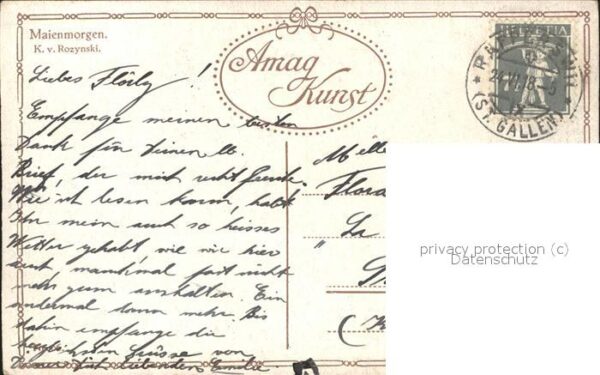 Maienmorgen.
K. v. Rozynski.
Amag
Kunst
HELVETIA
(ST. GALLEN)
Liebes Flörly!
Empfange meinen besten
Dank für Deinen lb.
Brief, der mich recht freute.
Wie ich lesen kann, habt
Ihr mein auch so heisses
Wetter gehabt, wie wir hier
auch manchmal fast nicht
mehr zum aushalten. Ein
andermal dann mehr. Bis
dahin empfange die
herzlichsten Grüsse von
Deiner Dich liebenden Emilie.
Flora
"La
privacy protection (c)
Datenschutz